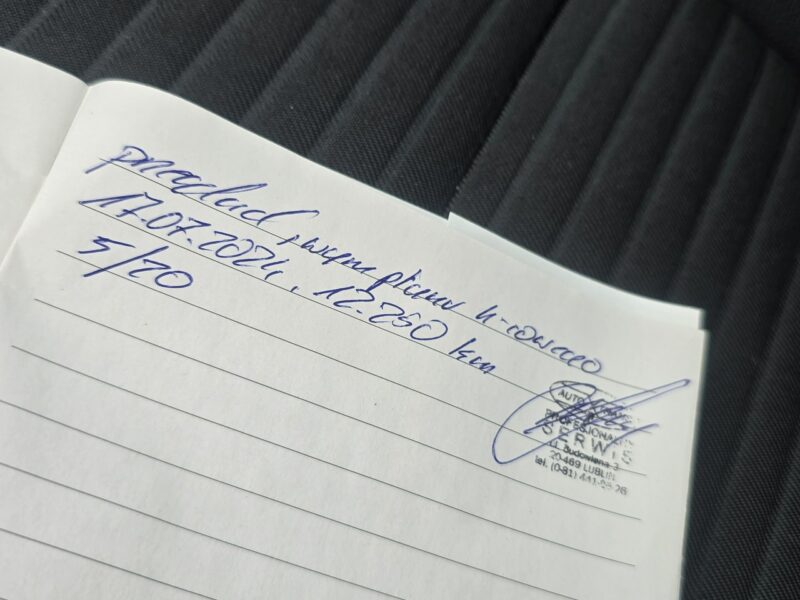 przegląd, wymiana płynu h-cowego
17.07.2024, 12.250 km
5/20
AUTO
PROFESJONALNY
SERWIS
ul. Budowlana 3
20-469 LUBLIN
tel. (0-81) 441-